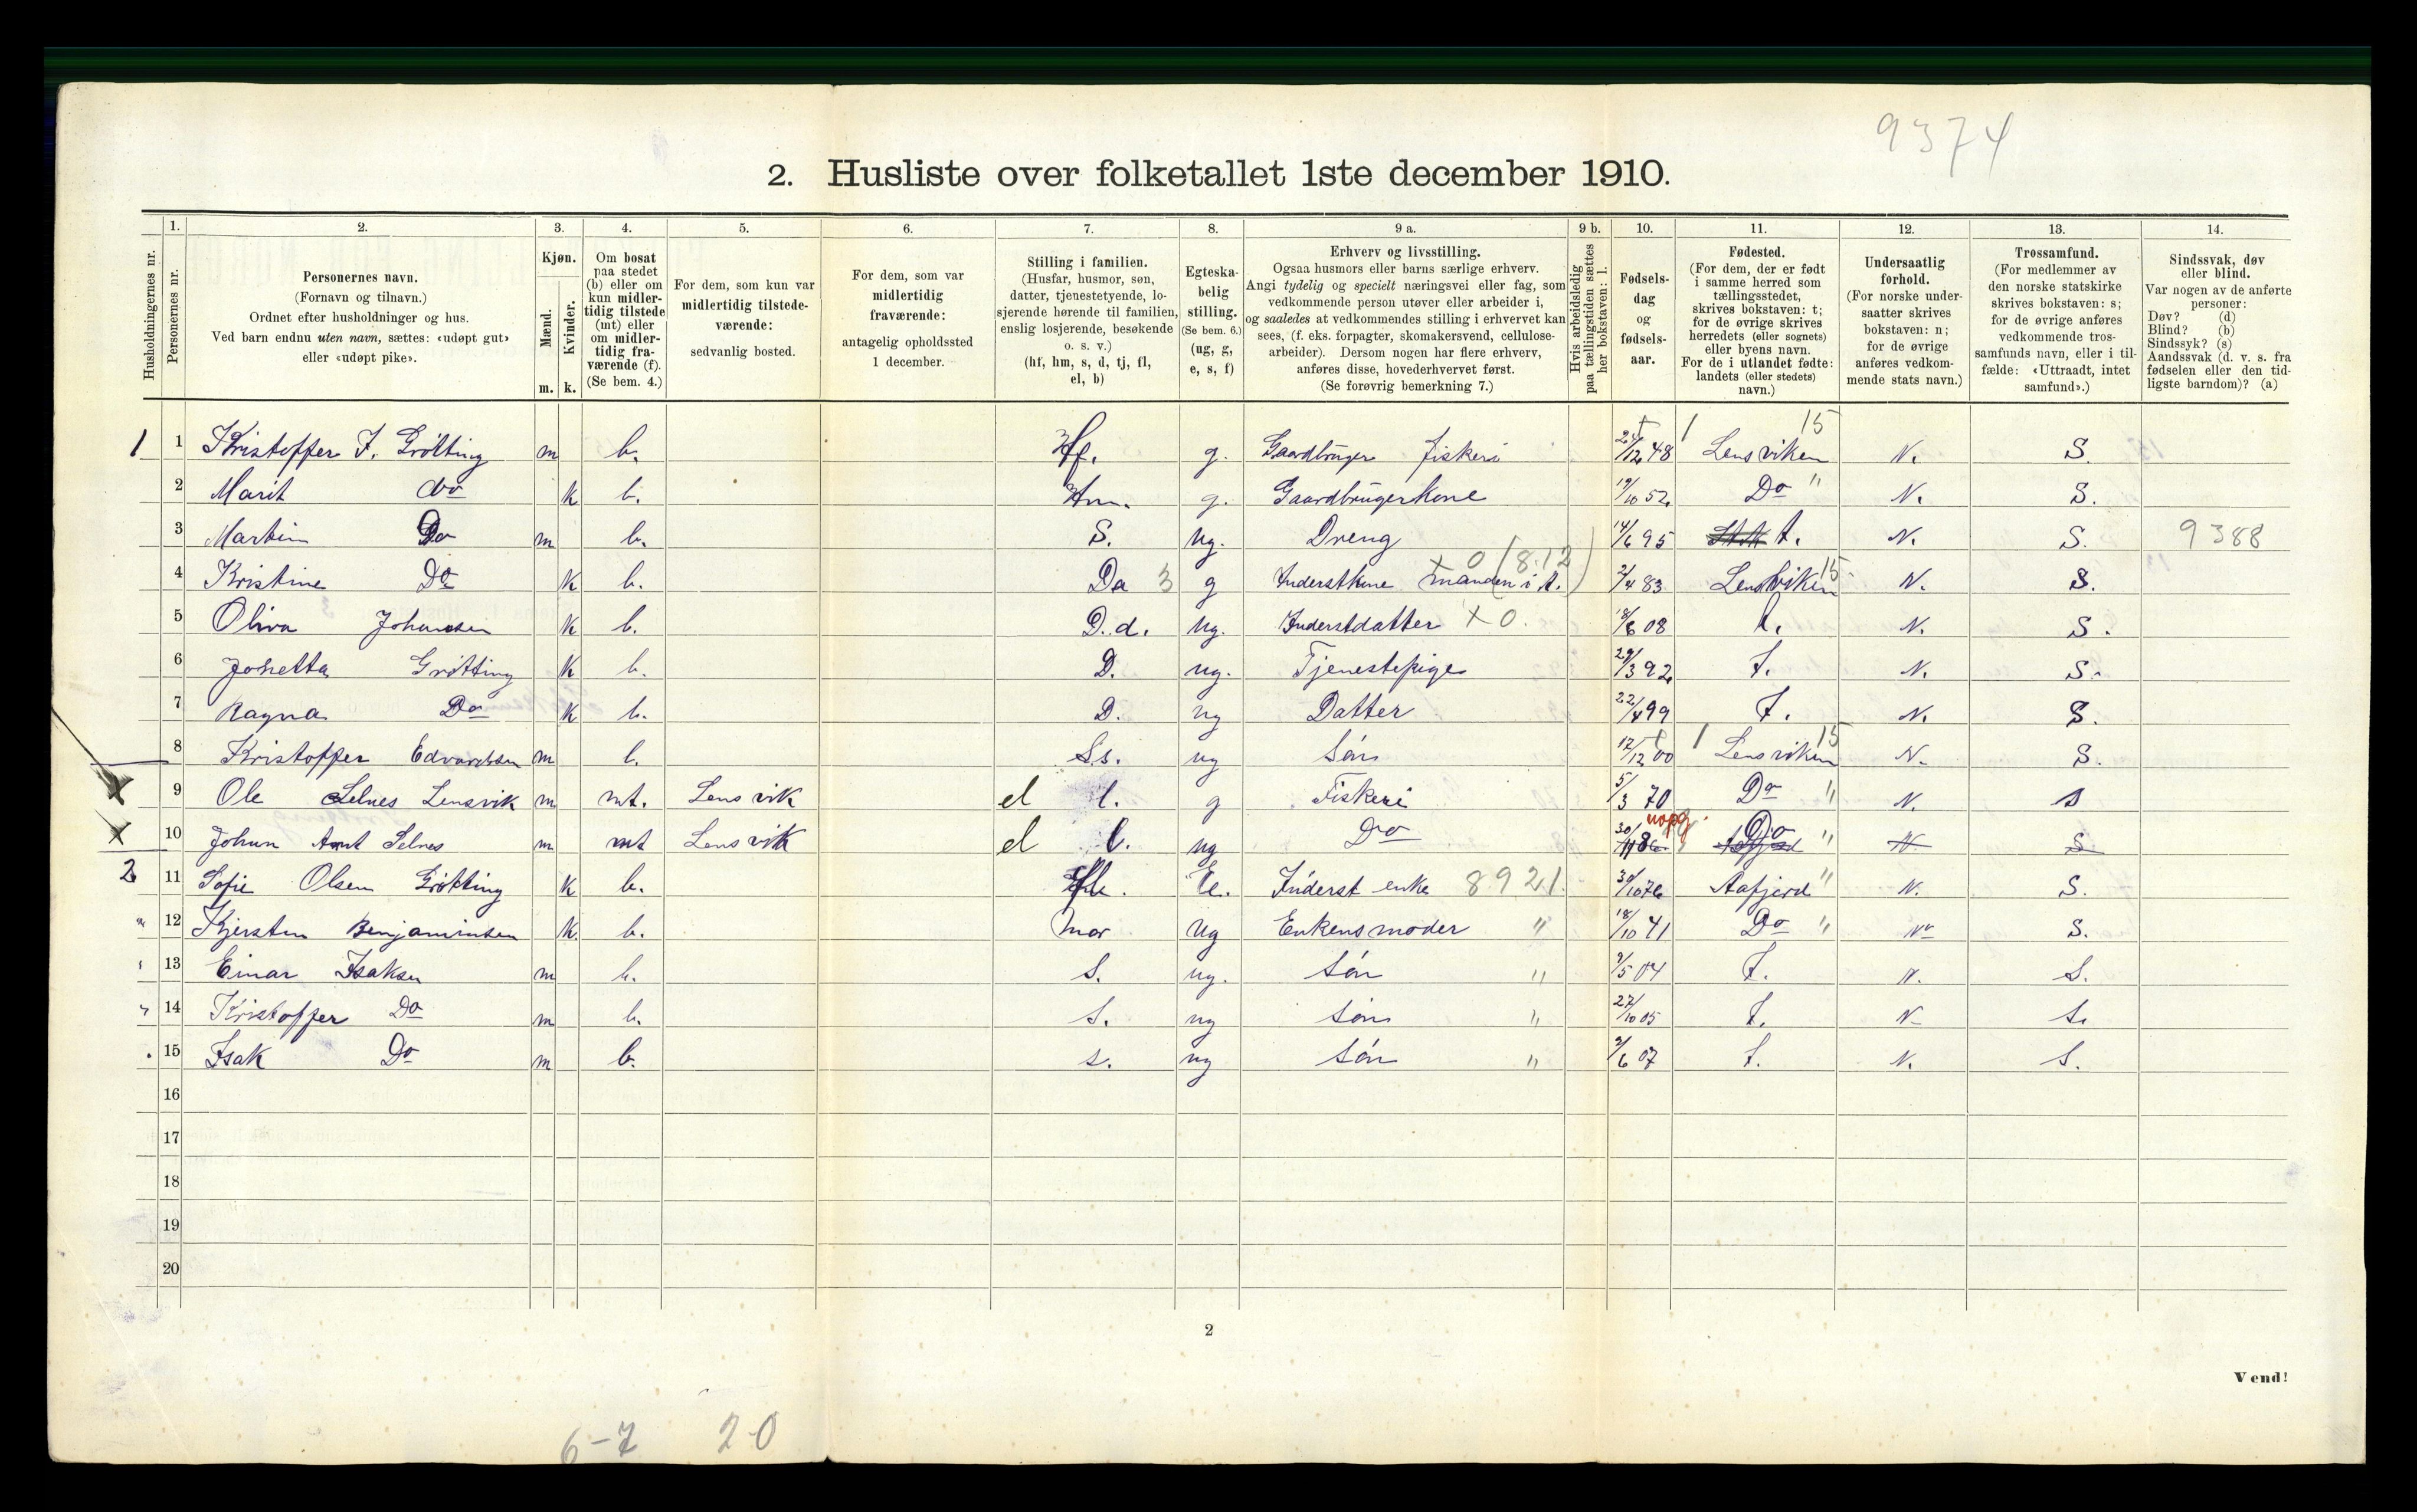 9374
2. Husliste over folketallet 1ste december 1910.
1. 2. 3. 4. 5. 6. 7. 8. 9 a. 9 b. 10. 11. 12. 13. 14.
Husholdningernes nr.
Personernes nr.
Personernes navn.
(Fornavn og tilnavn.)
Ordnet efter husholdninger og hus.
Ved barn endnu uten navn, sættes: «udøpt gut»
eller «udøpt pike».
Kjøn.
Mænd.
Kvinder.
m. k.
Om bosat
paa stedet
(b) eller om
kun midler-
tidig tilstede
(mt) eller
om midler-
tidig fra-
værende (f).
(Se bem. 4.)
For dem, som kun var
midlertidig tilstede-
værende:
sedvanlig bosted.
For dem, som var
midlertidig
fraværende:
antagelig opholdssted
1 december.
Stilling i familien.
(Husfar, husmor, søn,
datter, tjenestetyende, lo-
sjerende hørende til familien,
enslig losjerende, besøkende
o. s. v.)
(hf, hm, s, d, tj, fl,
el, b)
Egteska-
belig
stilling.
(Se bem. 6.)
(ug, g,
e, s, f)
Erhverv og livsstilling.
Ogsaa husmors eller barns særlige erhverv.
Angi tydelig og specielt næringsvei eller fag, som
vedkommende person utøver eller arbeider i,
og saaledes at vedkommendes stilling i erhvervet kan
sees, (f. eks. forpagter, skomakersvend, cellulose-
arbeider). Dersom nogen har flere erhverv,
anføres disse, hovederhvervet først.
(Se forøvrig bemerkning 7.)
Hvis arbeidsledig
paa tællingstiden sættes
her bokstaven: l.
Fødsels-
dag
og
fødsels-
aar.
Fødested.
(For dem, der er født
i samme herred som
tællingsstedet,
skrives bokstaven: t;
for de øvrige skrives
herredets (eller sognets)
eller byens navn.
For de i utlandet fødte:
landets (eller stedets)
navn.)
Undersaatlig
forhold.
(For norske under-
saatter skrives
bokstaven: n;
for de øvrige
anføres vedkom-
mende stats navn.)
Trossamfund.
(For medlemmer av
den norske statskirke
skrives bokstaven: s;
for de øvrige anføres
vedkommende tros-
samfunds navn, eller i til-
fælde: «Uttraadt, intet
samfund».)
Sindssvak, døv
eller blind.
Var nogen av de anførte
personer:
Døv? (d)
Blind? (b)
Sindssyk? (s)
Aandssvak (d. v. s. fra
fødselen eller den tid-
ligste barndom)? (a)
1 1 Kristoffer J. Grötting m b. Hf. g. Gaardbruger Fiskeri 24/12 48 Lensviken 15 N. S.
2 Marit do k b. Hm. g. Gaardbrugerkone 19/10 52 Do " N. S.
3 Martin Do m b. S. ug. Dreng 14/6 95 t. N. S. 9388
4 Kristine Do k b. Da 3 g Inderstkone manden i A. x 0 (8.12) 2/4 83 Lensviken 15 N. S.
5 Oliva Johansen k b. D. d. ug. Inderstdatter x 0. 18/8 08 t. N. S.
6 Jonetta Grötting k b. D. ug. Tjenestepige 29/3 92 T. N. S.
7 Ragna Do k b. D. ug Datter 22/4 99 T. N. S.
8 Kristoffer Edvardsen m b. Ss. ug Sön 17/12 00 Lensviken 15 N. S.
x 9 Ole Selnes Lensvik m mt. Lensvik el l. g Fiskeri 5/3 70 Do " N. S
x 10 Johan Arnt Selnes m mt Lensvik el l. ug Do 30/11 8 uopg. Do " N S
2 11 Sofie Olsen Grötting k b. E. Inderst enke 8921. 30/10 76 Aafjord " N. S.
" 12 Kjersten Benjaminsen k b. Mor ug Enkens moder " 18/10 41 Do " N S.
13 Einar Isaksen m b. S. ug. Sön " 9/5 04 T. N. S.
14 Kristoffer Do m b. S. ug Sön " 27/10 05 T. N S.
15 Isak Do m b. S. ug Sön " 9/6 07 T. N. S.
16
17
18
19
20
2
Vend!
6-7 20